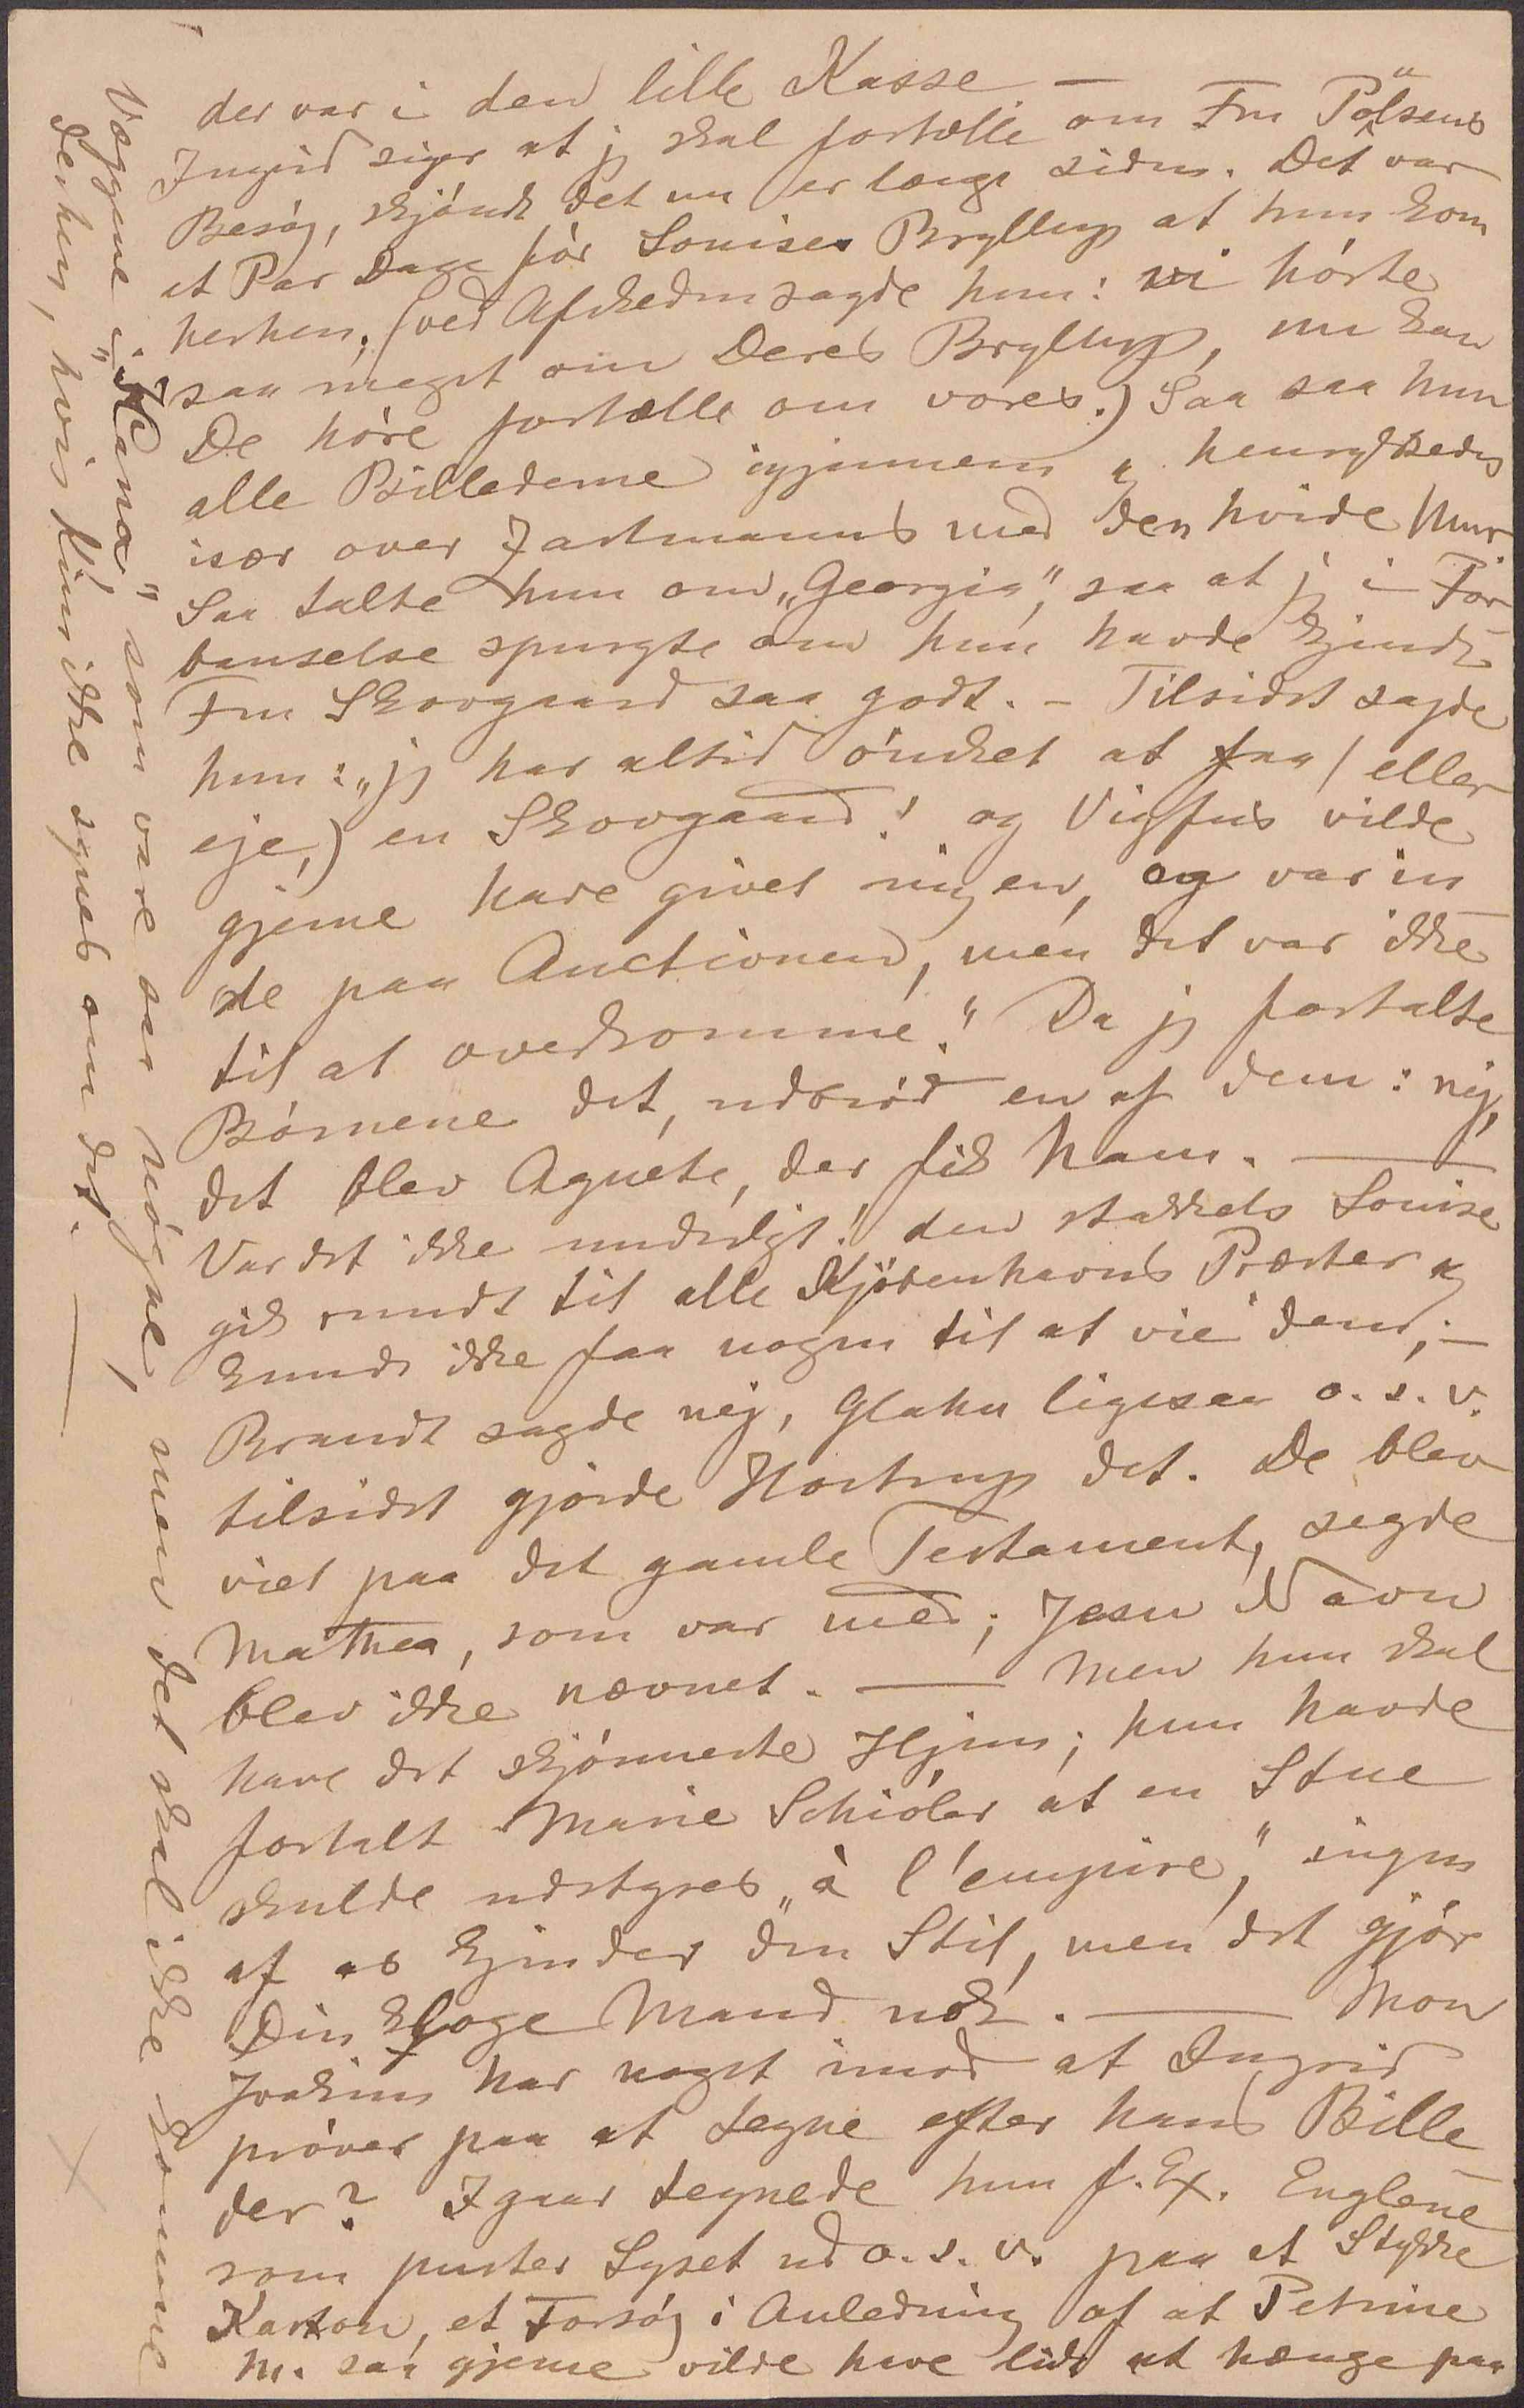 der var i den lille Kasse —
Ingrid siger at jeg skal fortælle om Fru Pølsens
Besøg, skjøndt det nu er længe siden. Det var
et Par Dage før Louises Bryllup at hun kom
herhen, (ved Afskeden sagde hun: vi hørte
saa meget om Deres Bryllup, nu kan
De høre fortælle om vores.) Saa saa hun
alle Billederne igjennem og henrykkedes
især over Zartmanns med den hvide Mur
Saa talte hun om „Georgia", saa at jeg i For
bauselse spurgte om hun havde kjendt
Fru Skovgaard saa godt. – Tilsidst sagde
hun: „jeg har altid ønsket at faa (eller
eje,) en Skovgaard! og Vigfus vilde
gjerne have givet mig en, og var in
de paa Auctionen, men det var ikke
til at overkomme." Da jeg fortalte
Børnene det, udbrød en af dem: nej,
det blev Agnete, der fik ham. —
Var det ikke underligt! den stakkels Louise
gik rundt til alle Kjøbenhavns Præster og
kunde ikke faa nogen til at vie dem; –
Brandt sagde nej, Glahn ligesaa o. s. v.
tilsidst gjorde Hostrup det. De blev
viet paa det gamle Testament, sagde
Mathea, som var med; Jesu Navn
blev ikke nævnet. — Men hun skal
have det skjønneste Hjem; hun havde
fortalt Marie Schiøler at en Stue
skulde udstyres „à l'empire," ingen
af os kjender den Stil, men det gjør
Din kloge Mand nok. — Mon
Joakim har noget imod at Ingrid
prøver paa at tegne efter hans Bille
der? Igaar tegnede hun f. Ex. Englene
som puster Lyset ud o. s. v. paa et Stykke
Karton, et Forsøg i Anledning af at Petrine
M. saa gjerne vilde have lidt at hænge paa
Væggene i „Kana" som vare saa nøgne, men det skal ikke komme
derhen, hvis Du ikke synes om det. —